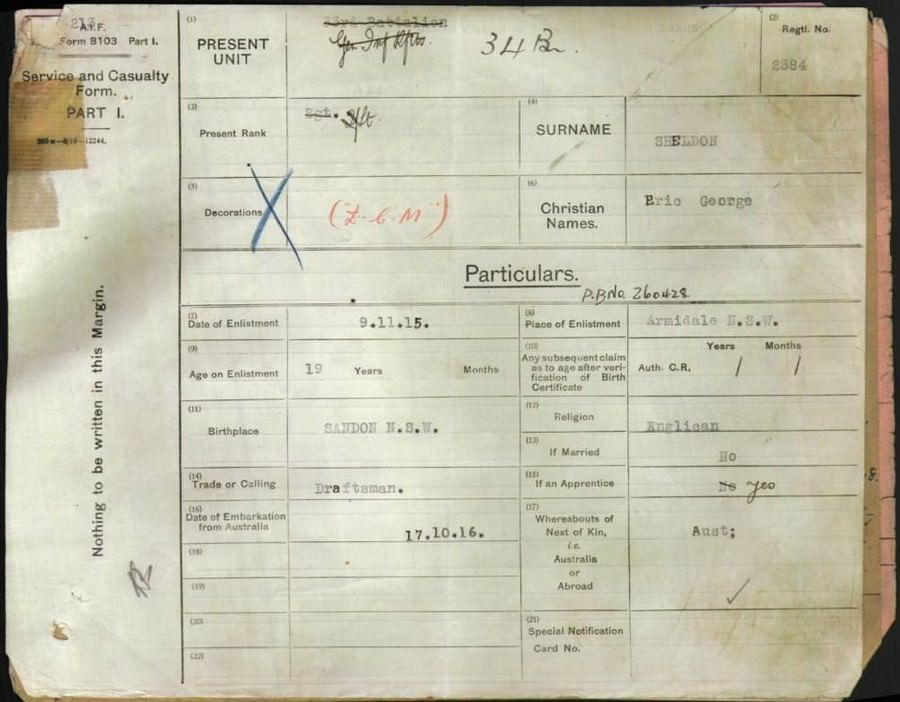 213
A.I.F.
Form B103 Part I.
Service and Casualty
Form.
PART I.
Nothing to be written in this Margin.
(1)
PRESENT
UNIT
33rd Battalion
Gen Inf Rfts.
34 Bn.
(2)
Regtl. No.
2384
(3)
Present Rank
Sgt.
(4)
SURNAME
SHELDON
(5)
Decorations
(6)
Christian
Names.
Eric George
Particulars.
P.B No. 260428
(7)
Date of Enlistment
9.11.15.
(8)
Place of Enlistment
Armidale N.S.W.
(9)
Age on Enlistment
19 Years Months
(10)
Any subsequent claim
as to age after veri-
fication of Birth
Certificate
Years Months
Auth. C.R. / /
(11)
Birthplace
SANDON N.S.W.
(12)
Religion
Anglican
(13)
If Married
No
(14)
Trade or Calling
Draftsman.
(15)
If an Apprentice
No yes
(16)
Date of Embarkation
from Australia
17.10.16.
(17)
Whereabouts of
Next of Kin,
i.e.
Australia
or
Abroad
Aust;
(18)
(19)
(20)
(21)
Special Notification
Card No.
(22)